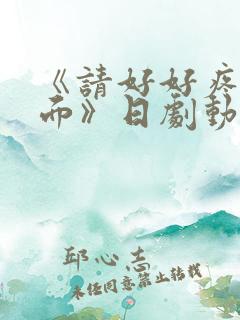 《請好好疼
而》日劇動
邱心志
未經同意禁止轉載